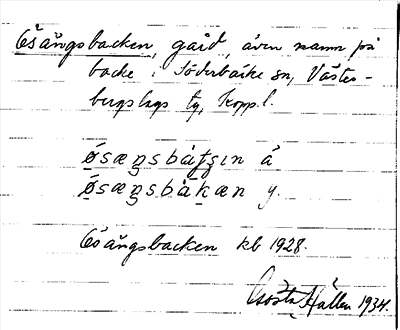 Ösängsbacken, gård, även namn på
backe i Söderbärke sn, Väster-
bergslags tg, Kopp. l.
ø̄sæŋsbàʃʃɪn å
ø̄sæŋsbàkæn y.
Ösängsbacken kb 1928.
Gösta Hallén 1934.